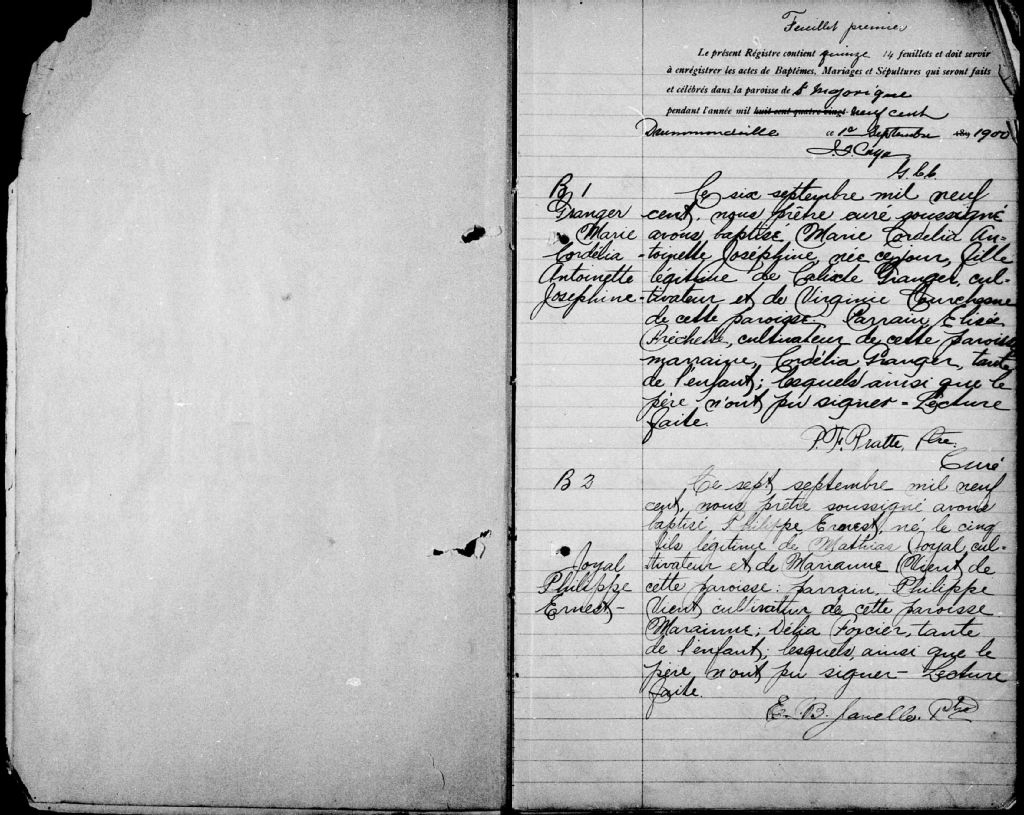 Feuillet premier
Le présent Régistre contient quinze 14 feuillets et doit servir
à enrégistrer les actes de Baptêmes, Mariages et Sépultures qui seront faits
et célébrés dans la paroisse de St Majorique
pendant l'année mil huit cent quatre vingt neuf cent
Drummondville ce 1er Septembre 189 1900
J. I. Caya
G. C. C.
B 1 Ce six septembre mil neuf
Granger cent, nous prêtre curé soussigné
Marie avons baptisé Marie Cordélia An-
Cordélia -toinette Joséphine, née ce jour, fille
Antoinette légitime de Calixte Granger, cul-
Joséphine -tivateur et de Virginie Courchesne
de cette paroisse. Parrain Elisée
Fréchette, cultivateur de cette paroisse
marraine, Cordélia Granger, tante
de l'enfant; lesquels ainsi que le
père n'ont pu signer - Lecture
faite.
P. F. Pratte, Ptre.
Curé
B 2 Ce sept septembre mil neuf
cent, nous prêtre soussigné avons
baptisé Philippe Ernest, né le cinq
fils légitime de Mathias Joyal, cul-
Joyal tivateur et de Marianne Vient de
Philippe cette paroisse: parrain, Philippe
Ernest - Vient cultivateur de cette paroisse
Marainne; Délia Forcier, tante
de l'enfant; lesquels, ainsi que le
père n'ont pu signer - Lecture
faite.
E. B. Janelle. Ptre